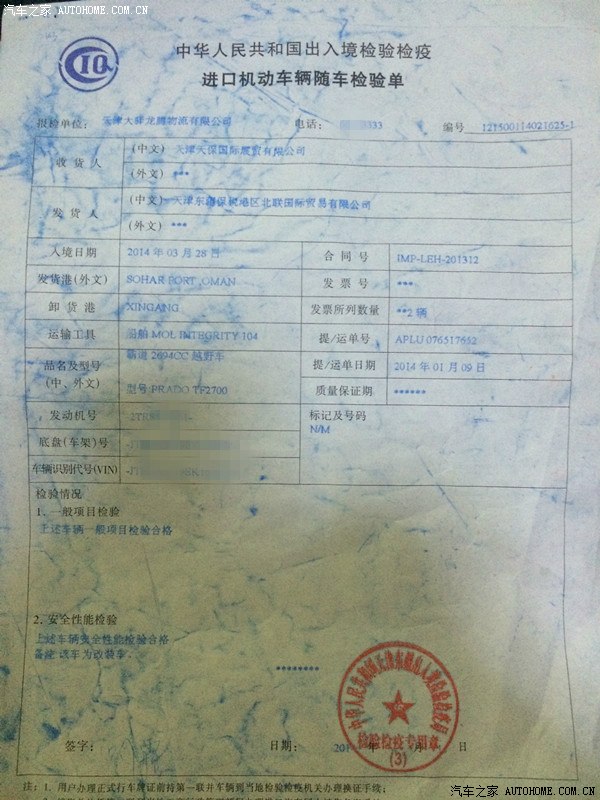 汽车之家 AUTOHOME.COM.CN
CIQ
中华人民共和国出入境检验检疫
进口机动车辆随车检验单
报检单位: 天津大 龙腾物流有限公司 电话: 333 编号 121500114021625-1
收货人 (中文) 天津天保国际展贸有限公司
(外文) ***
发货人 (中文) 天津东疆保税港区北联国际贸易有限公司
(外文) ***
入境日期 2014 年 03 月 28 日 合同号 IMP-LEH-201312
发货港(外文) SOHAR PORT ,OMAN 发票号 ***
卸货港 XINGANG 发票所列数量 **2 辆
运输工具 船舶 MOL INTEGRITY 104 提/运单号 APLU 076517652
品名及型号 霸道 2694CC 越野车 提/运单日期 2014 年 01 月 09 日
(中、外文) 型号:PRADO TF2700 质量保证期 ******
发动机号 -2TR 标记及号码
N/M
底盘(车架)号
车辆识别代号(VIN)
检验情况
1. 一般项目检验
上述车辆一般项目检验合格
2. 安全性能检验
上述车辆安全性能检验合格
备注:该车为改装车.
********
检验检疫专用章
(3)
签字: 日期: 201 年 月 日
注: 1. 用户办理正式行车牌证前持第一联并车辆到当地检验检疫机关办理换证手续;
汽车之家 AUTOHOME.COM.CN